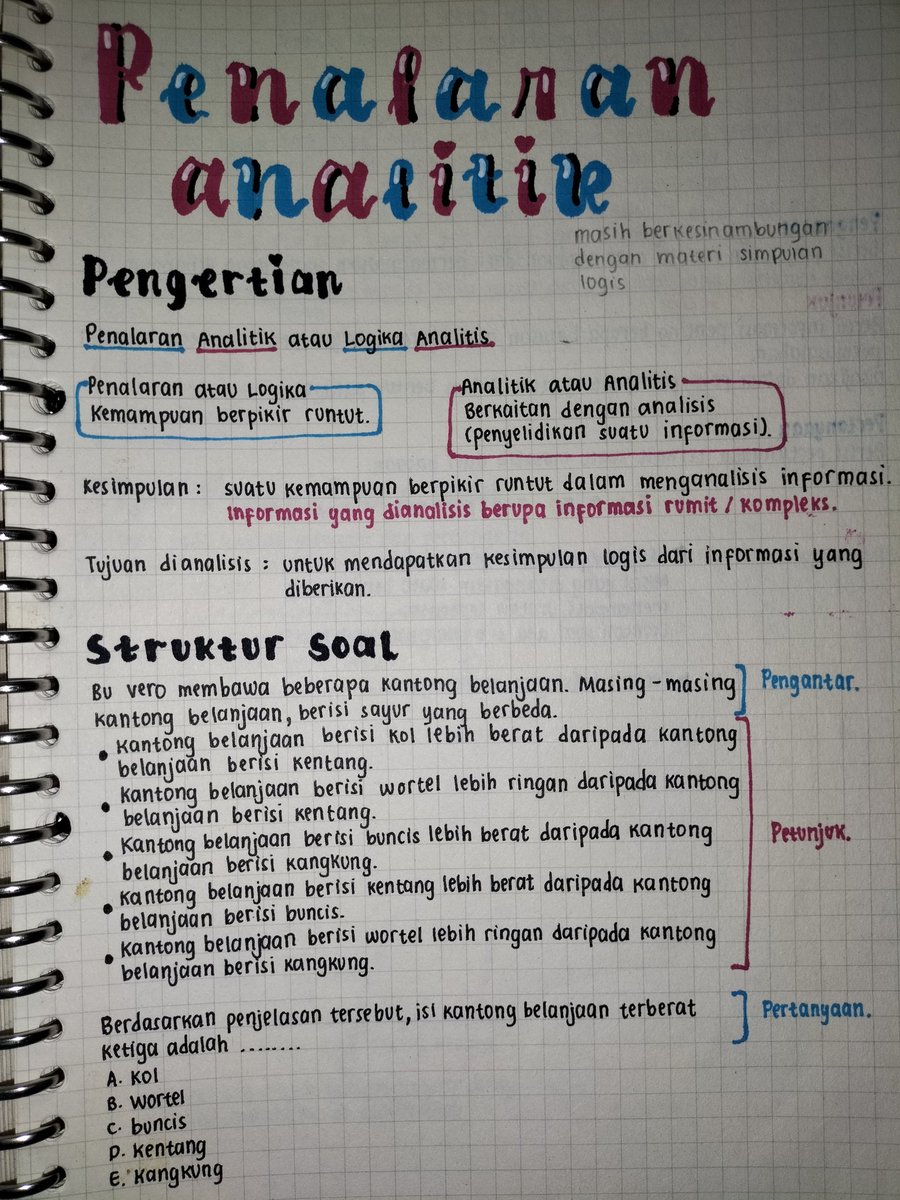 Penalaran
analitik
masih berkesinambungan
dengan materi simpulan
logis
Pengertian
Penalaran Analitik atau Logika Analitis.
Penalaran atau Logika
Kemampuan berpikir runtut.
Analitik atau Analitis
Berkaitan dengan analisis
(penyelidikan suatu informasi).
Kesimpulan : suatu kemampuan berpikir runtut dalam menganalisis informasi.
Informasi yang dianalisis berupa informasi rumit / kompleks.
Tujuan dianalisis : untuk mendapatkan kesimpulan logis dari informasi yang
diberikan.
Struktur Soal
Bu vero membawa beberapa kantong belanjaan. Masing - masing
kantong belanjaan, berisi sayur yang berbeda.
Pengantar.
• Kantong belanjaan berisi kol lebih berat daripada kantong
belanjaan berisi kentang.
• Kantong belanjaan berisi wortel lebih ringan daripada kantong
belanjaan berisi kentang.
• Kantong belanjaan berisi buncis lebih berat daripada kantong
belanjaan berisi kangkung.
• Kantong belanjaan berisi kentang lebih berat daripada kantong
belanjaan berisi buncis.
• Kantong belanjaan berisi wortel lebih ringan daripada kantong
belanjaan berisi kangkung.
Petunjuk.
Berdasarkan penjelasan tersebut, isi kantong belanjaan terberat
ketiga adalah ........
Pertanyaan.
A. Kol
B. Wortel
C. buncis
D. Kentang
E. Kangkung